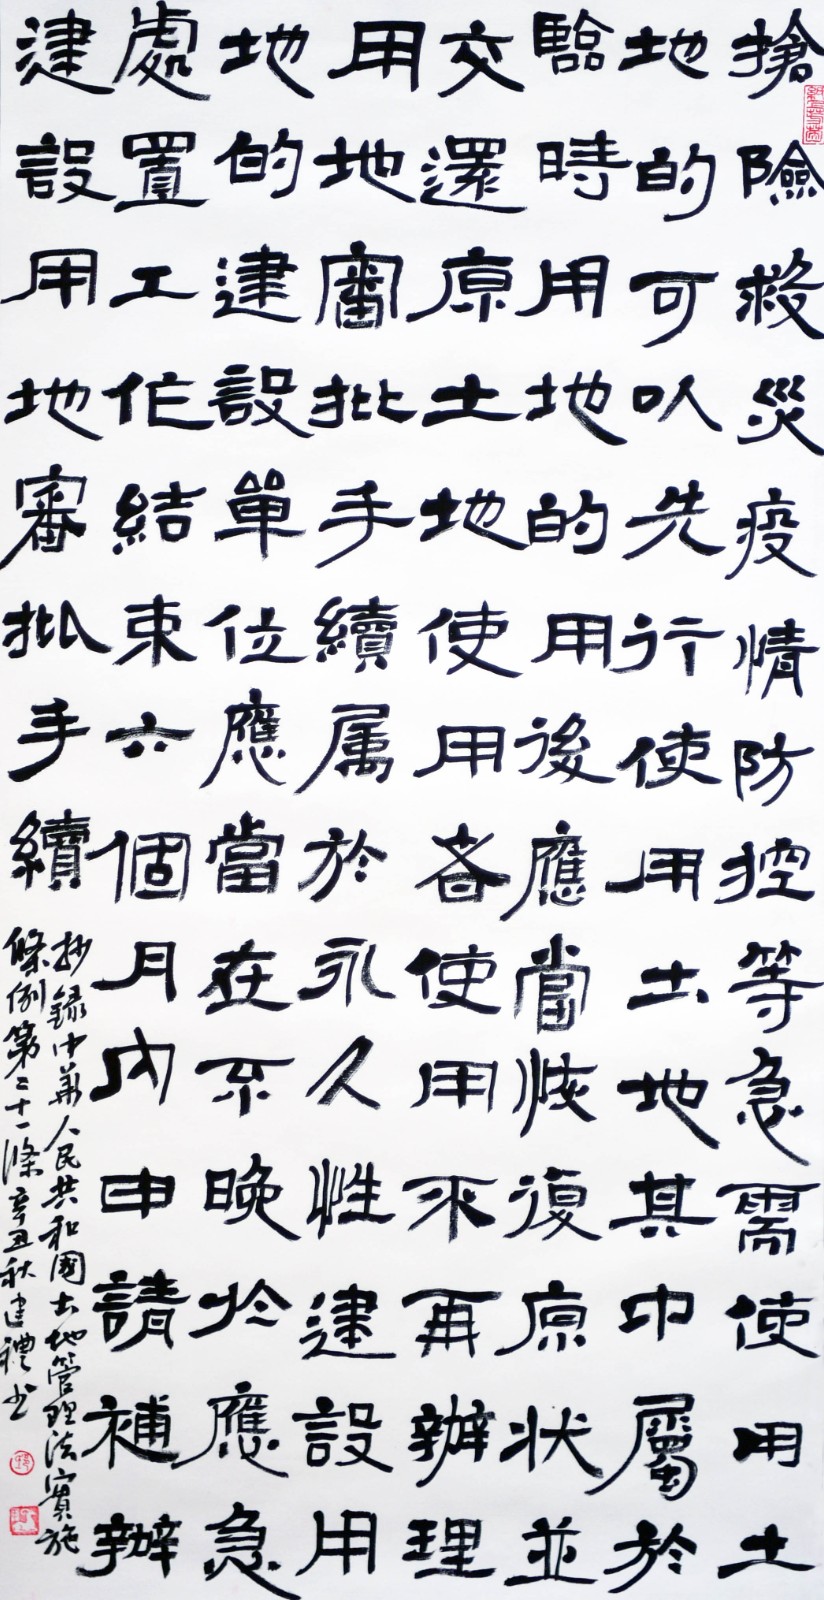 搶險救災疫情防控等急需使用土
地的可以先行使用土地其中屬於
臨時用地的用後應當恢復原狀並
交還原土地使用者使用不再辦理
用地審批手續属於永久性建設用
地的建設單位應當在不晚於應急
處置工作結束六個月內申請補辦
建設用地審批手續
抄録中華人民共和國土地管理法實施
條例第二十一條辛丑秋建禮书